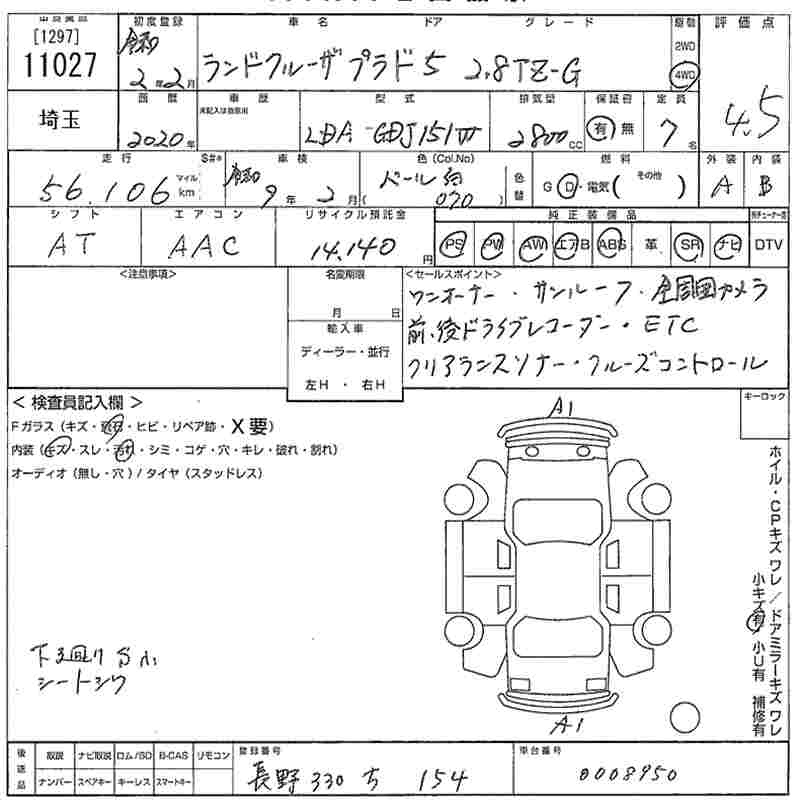 [1297]
11027
初度登録
令和
2年2月
車名 ドア グレード
ランドクルーザープラド 5 2.8TZ-G
駆動
2WD
4WD
評価点
4.5
埼玉
西暦
2020年
車歴
未記入は自家用
型式
LDA-GDJ151W
排気量
2800cc
保証書
有 無
定員
7名
走行
56,106
マイル
km
S#*
車検
令和
9年2月
色 (Col.No)
パール
(070)
色替
燃料
G・D・電気( その他 )
外装
A
内装
B
シフト
AT
エアコン
AAC
リサイクル預託金
14,140円
純正装備品
PS PW AW エアB ABS 革 SR ナビ
DTV
<注意事項>
名変期限
月 日
輸入車
ディーラー・並行
左H・右H
<セールスポイント>
ワンオーナー・サンルーフ・全周囲カメラ
前、後ドライブレコーダー・ETC
クリアランスソナー・クルーズコントロール
キーロック
<検査員記入欄>
Fガラス(キズ・飛石・ヒビ・リペア跡・X要)
内装(キズ・スレ・汚れ・シミ・コゲ・穴・キレ・破れ・割れ)
オーディオ(無し・穴)/タイヤ(スタッドレス)
A1
A1
ホイル・CPキズ ワレ/ドアミラーキズ ワレ
小キズ有 小U有 補修有
下廻りサ小
シートシワ
後送品
取説 ナビ取説 ロム/SD B-CAS リモコン
ナンバー スペアキー キーレス スマートキー
登録番号
長野 330 ち 154
車台番号
0008950